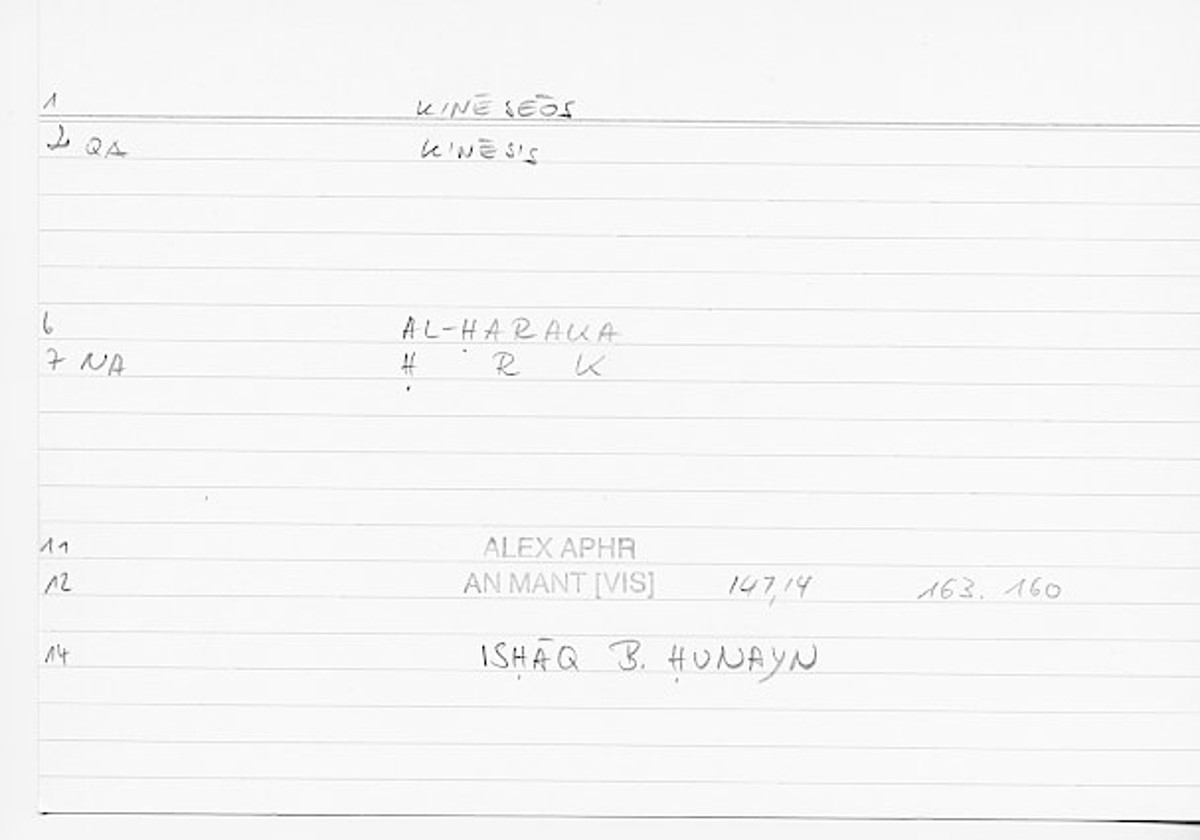 1 KINĒSEŌS
2 QA KINĒSIS
6 AL-ḤARAKA
7 NA Ḥ R K
11 ALEX APHR
12 AN MANT [VIS] 147,14 163. 160
14 ISḤĀQ B. ḤUNAYN